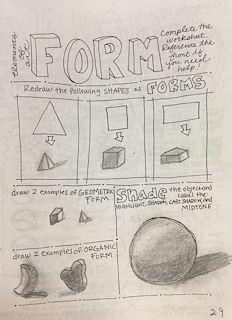 elements of art
FORM
Complete the
worksheet.
Reference the
front if you
need
help!
Redraw the following SHAPES as FORMS
draw 2 examples of GEOMETRIC
FORM
Shade the object and
label the:
HIGHLIGHT, SHADOW, CAST SHADOW, AND
MIDTONE
draw 2 examples of ORGANIC
FORM
29